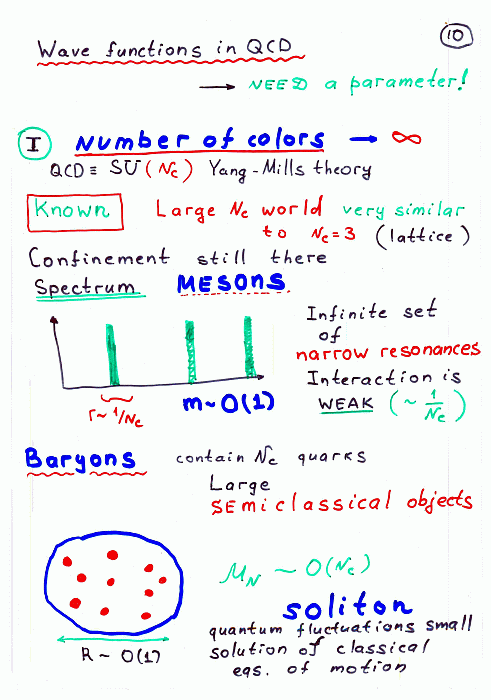 10
Wave functions in QCD
→ NEED a parameter!
I Number of colors → ∞
QCD ≡ SU(Nc) Yang-Mills theory
Known Large Nc world very similar
to Nc=3 (lattice)
Confinement still there
Spectrum MESONS
Infinite set
of
narrow resonances
Interaction is
WEAK (~ 1/Nc)
Γ~1/Nc m~O(1)
Baryons contain Nc quarks
Large
SEmiclassical objects
MN ~ O(Nc)
soliton
quantum fluctuations small
solution of classical
eqs. of motion
R ~ O(1)